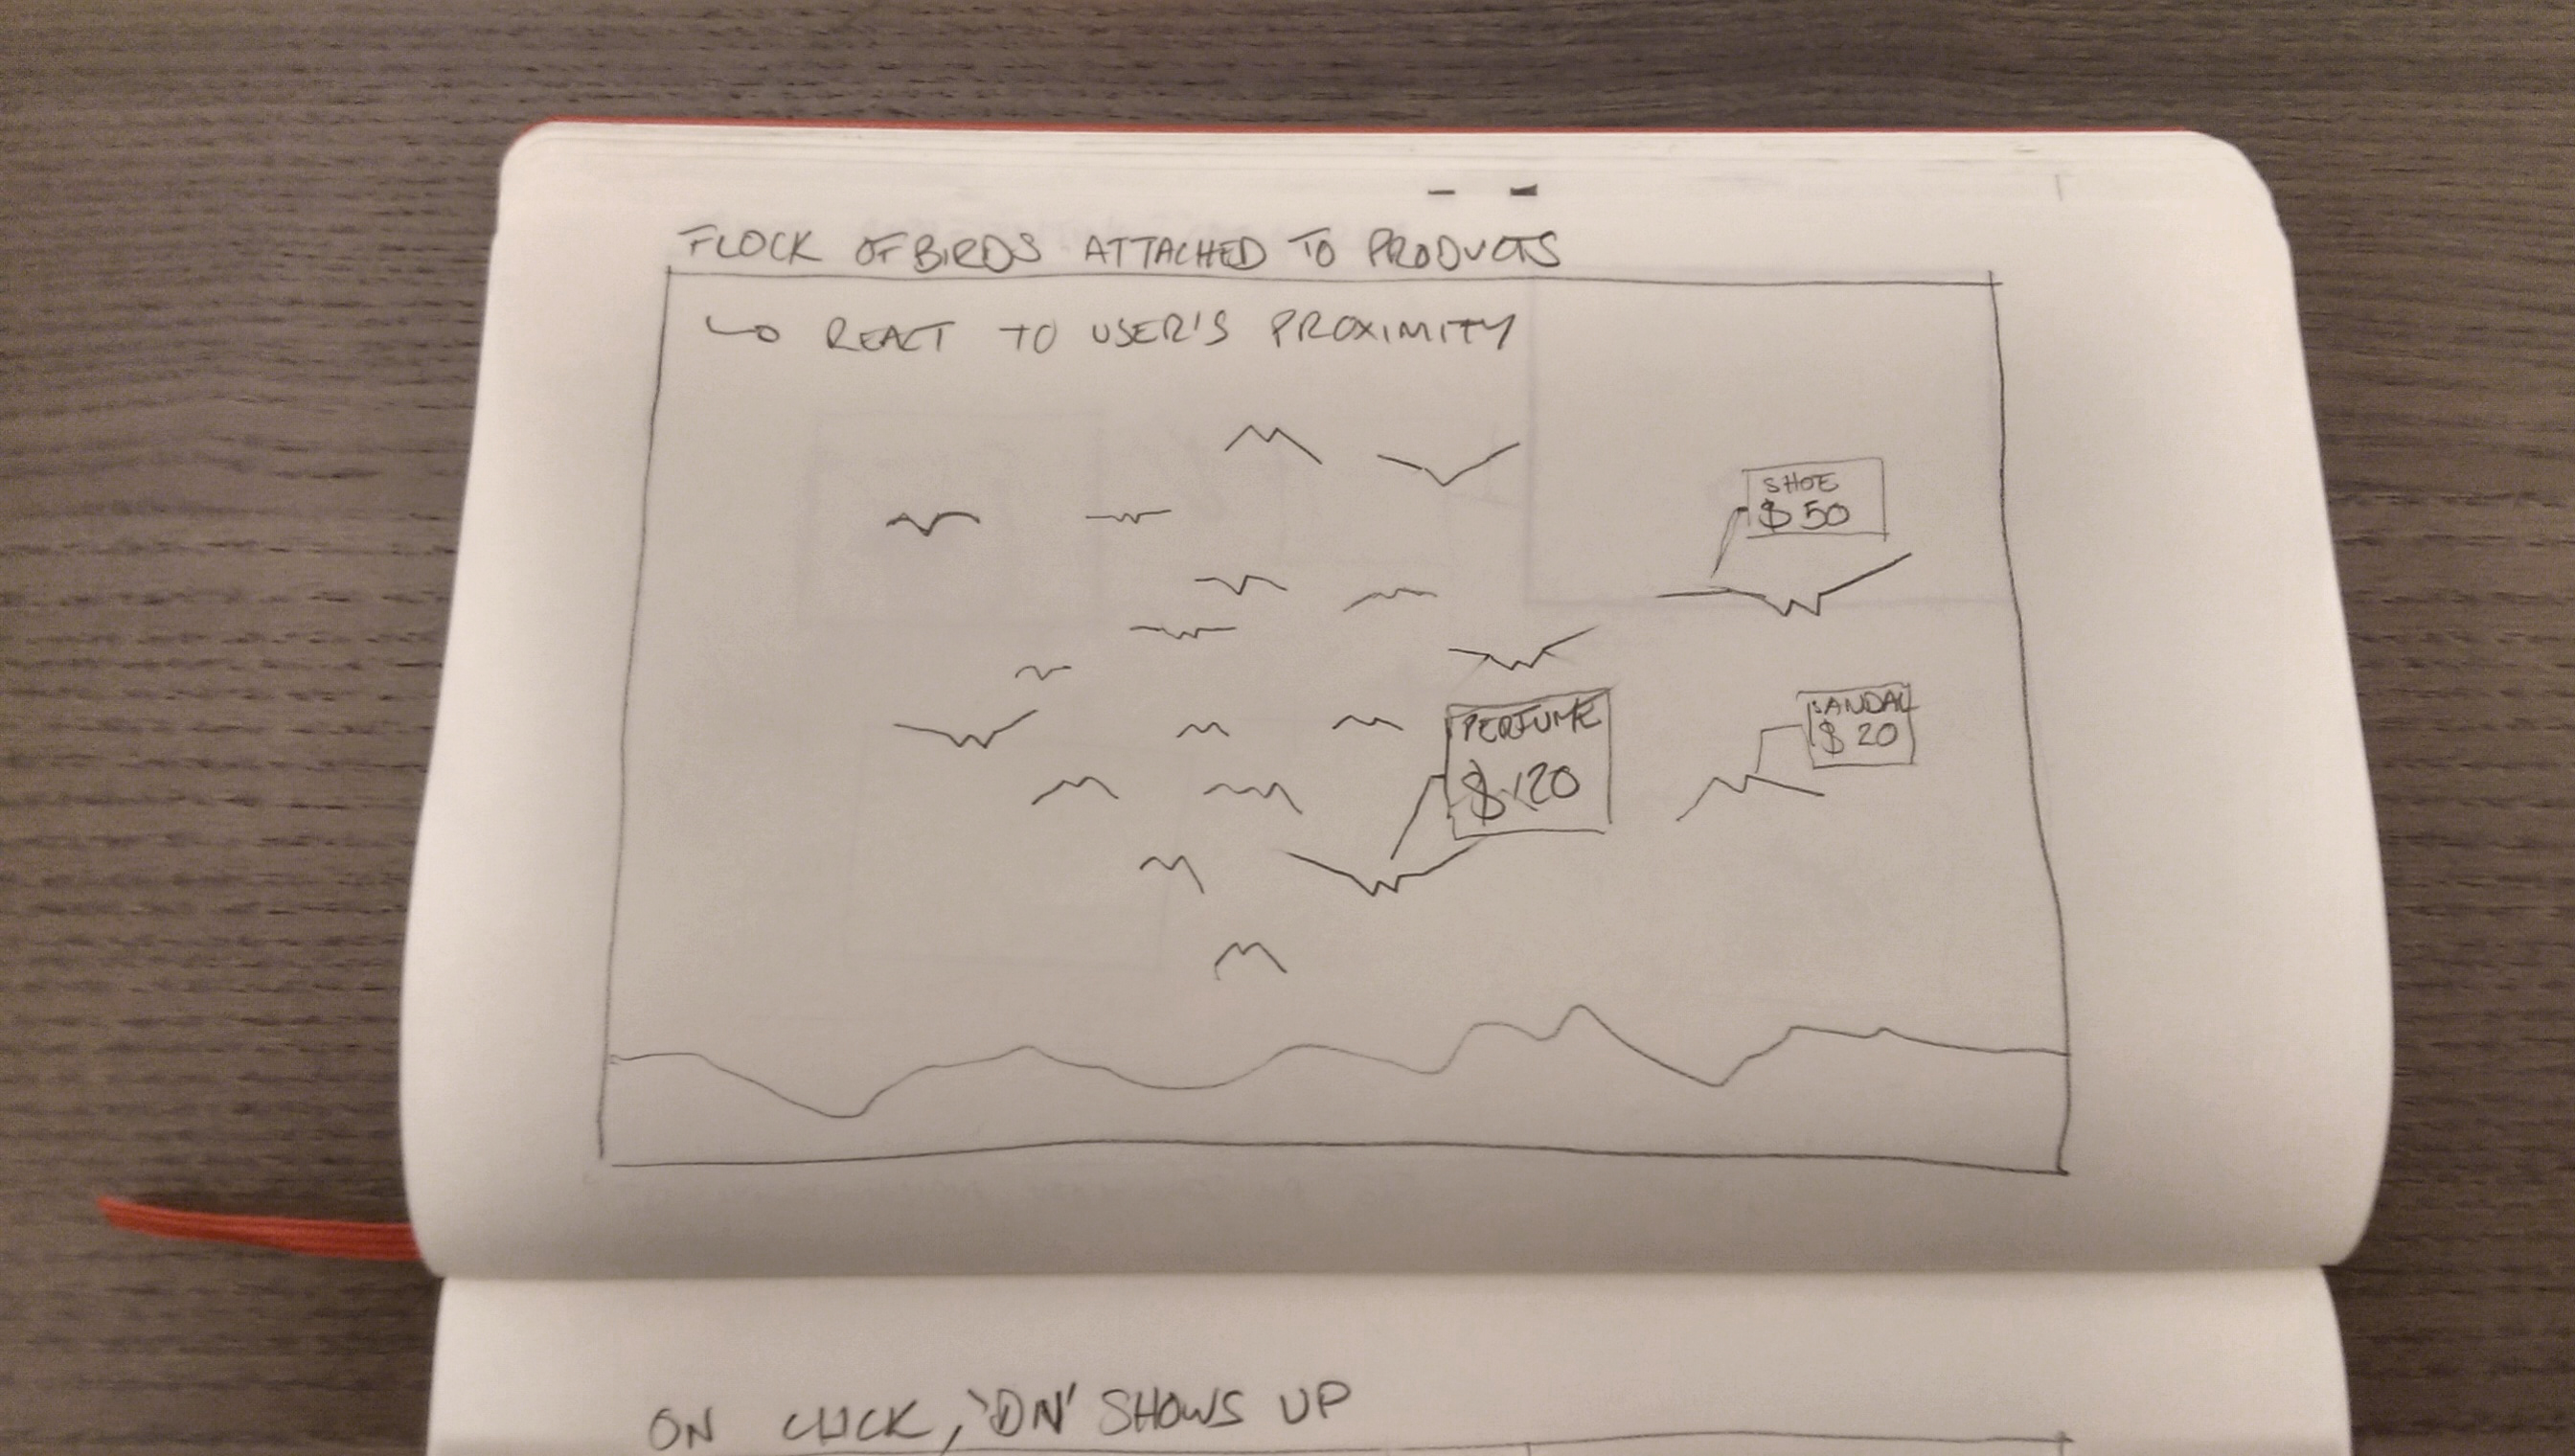 FLOCK OF BIRDS ATTACHED TO PRODUCTS
REACT TO USER'S PROXIMITY
SHOE
$50
PERFUME
$120
SANDAL
$20
ON CLICK, 'DN' SHOWS UP